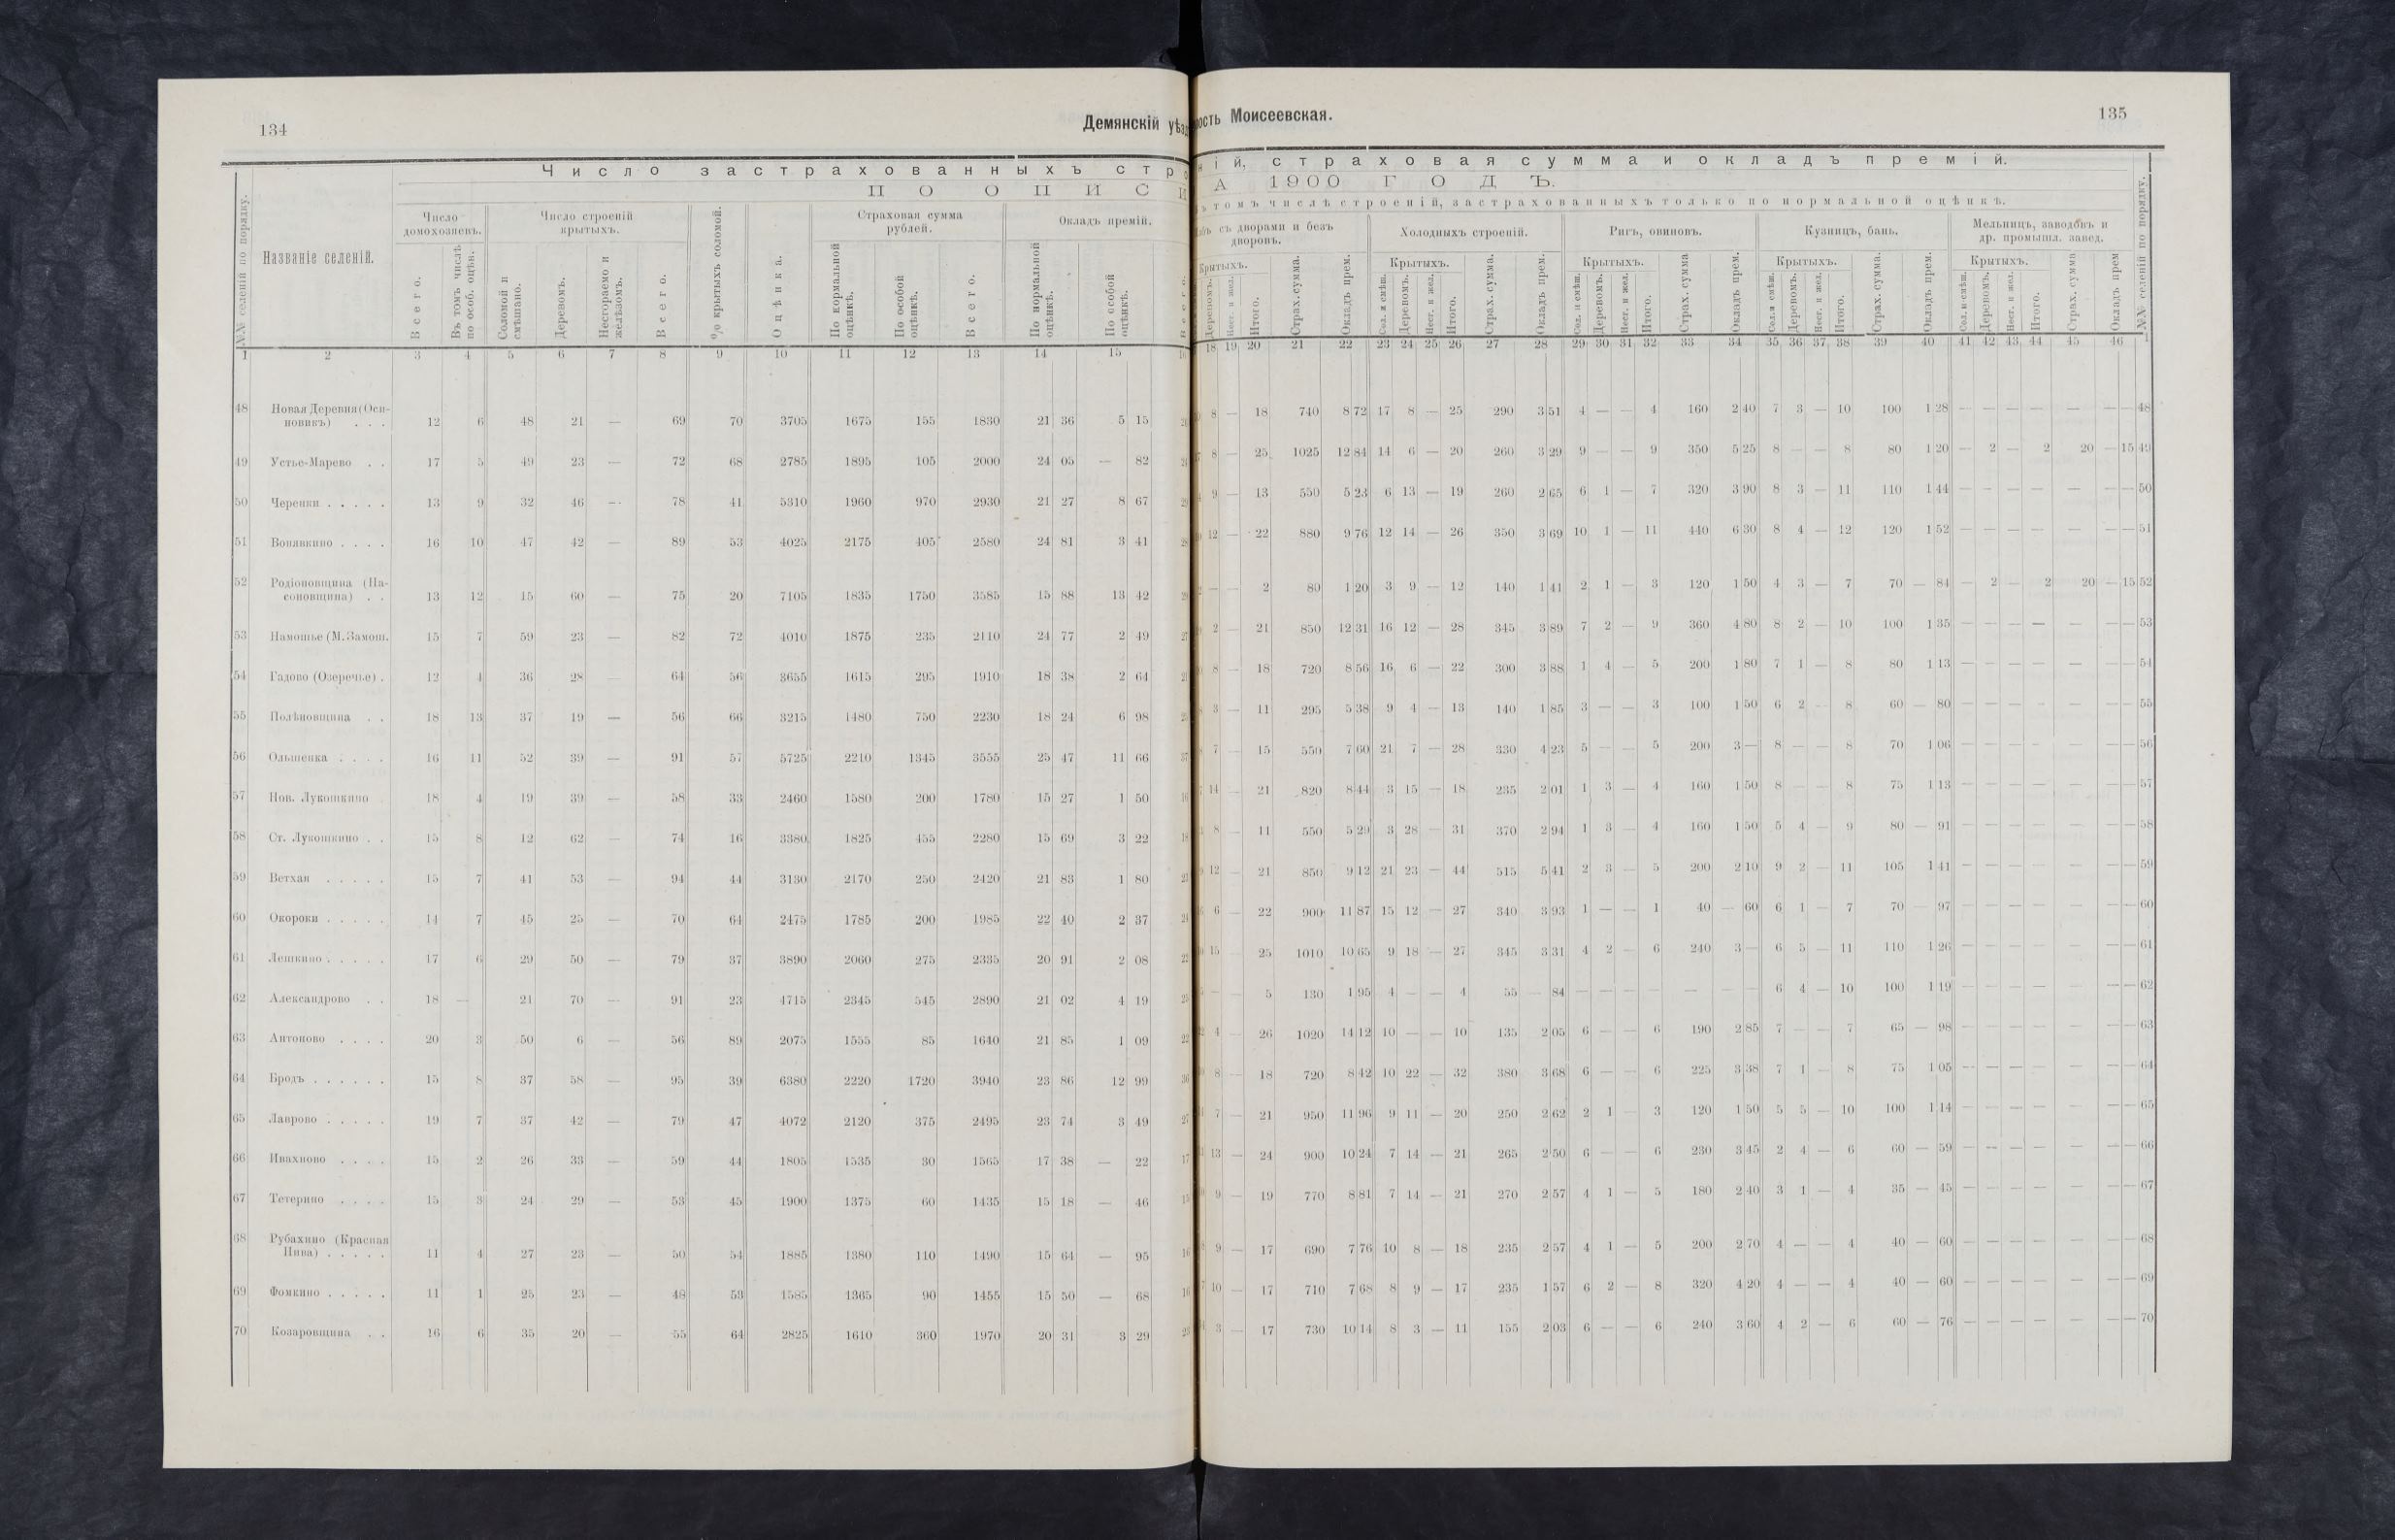 134
Демянскій
Моисеевская.
135
Число застрахованныхъ
страховая сумма и окладъ премій.
ПО ОПИСИ
А 1900 ГОДЪ.
томъ числѣ строеній, застрахованныхъ только по нормальной оцѣнкѣ.
№№ селеній по порядку.
Названіе селеній.
Число домохозяевъ.
Всего.
Въ томъ числѣ по особ. оцѣн.
Число строеній крытыхъ.
Соломой и смѣшано.
Деревомъ.
Несгораемо и желѣзомъ.
Всего.
% крытыхъ соломой.
Оцѣнка.
Страховая сумма рублей.
По нормальной оцѣнкѣ.
По особой оцѣнкѣ.
Всего.
Окладъ премій.
По нормальной оцѣнкѣ.
По особой оцѣнкѣ.
съ дворами и безъ дворовъ.
Крытыхъ.
Деревомъ.
Несг. и жел.
Итого.
Страх. сумма.
Окладъ прем.
Холодныхъ строеній.
Крытыхъ.
Сол. и смѣш.
Деревомъ.
Несг. и жел.
Итого.
Страх. сумма.
Окладъ прем.
Ригъ, овиновъ.
Крытыхъ.
Сол. и смѣш.
Деревомъ.
Несг. и жел.
Итого.
Страх. сумма
Окладъ прем.
Кузницъ, бань.
Крытыхъ.
Сол. и смѣш.
Деревомъ.
Несг. и жел.
Итого.
Страх. сумма.
Окладъ прем.
Мельницъ, заводовъ и др. промышл. завед.
Крытыхъ.
Сол. и смѣш.
Деревомъ.
Несг. и жел.
Итого.
Страх. сумма
Окладъ прем
№№ селеній по порядку.
1 2 3 4 5 6 7 8 9 10 11 12 13 14 15 18 19 20 21 22 23 24 25 26 27 28 29 30 31 32 33 34 35 36 37 38 39 40 41 42 43 44 45 46
48 Новая Деревня (Оси-
новикъ) . . . 12 6 48 21 — 69 70 3705 1675 155 1830 21 36 5 15 8 — 18 740 8 72 17 8 — 25 290 3 51 4 — — 4 160 2 40 7 3 — 10 100 1 28 — — — — — — — 48
49 Устье-Марево . . 17 5 49 23 — 72 68 2785 1895 105 2000 24 05 — 82 8 — 25 1025 12 84 14 6 — 20 260 3 29 9 — — 9 350 5 25 8 — — 8 80 1 20 — 2 — 2 20 — 15 49
50 Черенки . . . . . 13 9 32 46 — 78 41 5310 1960 970 2930 21 27 8 67 9 — 13 550 5 23 6 13 — 19 260 2 65 6 1 — 7 320 3 90 8 3 — 11 110 1 44 — — — — — — — 50
51 Вонявкино . . . . 16 10 47 42 — 89 53 4025 2175 405 2580 24 81 3 41 12 — 22 880 9 76 12 14 — 26 350 3 69 10 1 — 11 440 6 30 8 4 — 12 120 1 52 — — — — — — — 51
52 Родіоновщина (На-
соновщина) . . 13 12 15 60 — 75 20 7105 1835 1750 3585 15 88 13 42 — — 2 80 1 20 3 9 — 12 140 1 41 2 1 — 3 120 1 50 4 3 — 7 70 — 84 — 2 — 2 20 — 15 52
53 Намошье (М. Замош. 15 7 59 23 — 82 72 4010 1875 235 2110 24 77 2 49 2 — 21 850 12 31 16 12 — 28 345 3 89 7 2 — 9 360 4 80 8 2 — 10 100 1 35 — — — — — — — 53
54 Гадово (Озеречье) . 12 4 36 28 — 64 56 3655 1615 295 1910 18 38 2 64 8 — 18 720 8 56 16 6 — 22 300 3 88 1 4 — 5 200 1 80 7 1 — 8 80 1 13 — — — — — — — 54
55 Полѣновщина . . 18 13 37 19 — 56 66 3215 1480 750 2230 18 24 6 98 3 — 11 295 5 38 9 4 — 13 140 1 85 3 — — 3 100 1 50 6 2 — 8 60 — 80 — — — — — — — 55
56 Ольшенка . . . . 16 11 52 39 — 91 57 5725 2210 1345 3555 25 47 11 66 7 — 15 550 7 60 21 7 — 28 330 4 23 5 — — 5 200 3 — 8 — — 8 70 1 06 — — — — — — — 56
57 Нов. Лукошкино 18 4 19 39 — 58 33 2460 1580 200 1780 15 27 1 50 14 — 21 820 8 44 3 15 — 18 235 2 01 1 3 — 4 160 1 50 8 — — 8 75 1 13 — — — — — — — 57
58 Ст. Лукошкино . . 15 8 12 62 — 74 16 3380 1825 455 2280 15 69 3 22 8 — 11 550 5 29 3 28 — 31 370 2 94 1 3 — 4 160 1 50 5 4 — 9 80 — 91 — — — — — — — 58
59 Ветхан . . . . . 15 7 41 53 — 94 44 3130 2170 250 2420 21 83 1 80 12 — 21 850 9 12 21 23 — 44 515 5 41 2 3 — 5 200 2 10 9 2 — 11 105 1 41 — — — — — — — 59
60 Окороки . . . . . 14 7 45 25 — 70 64 2475 1785 200 1985 22 40 2 37 6 — 22 900 11 87 15 12 — 27 340 3 93 1 — — 1 40 — 60 6 1 — 7 70 — 97 — — — — — — — 60
61 Лешкино . . . . . 17 6 29 50 — 79 37 3890 2060 275 2335 20 91 2 08 15 — 25 1010 10 65 9 18 — 27 345 3 31 4 2 — 6 240 3 — 6 5 — 11 110 1 26 — — — — — — — 61
62 Александрово . . 18 — 21 70 — 91 23 4715 2345 545 2890 21 02 4 19 — — 5 130 1 95 4 — — 4 55 — 84 — — — — — — — 6 4 — 10 100 1 19 — — — — — — — 62
63 Антоново . . . . 20 3 50 6 — 56 89 2075 1555 85 1640 21 85 1 09 4 — 26 1020 14 12 10 — — 10 135 2 05 6 — — 6 190 2 85 7 — — 7 65 — 98 — — — — — — — 63
64 Бродъ . . . . . . 15 8 37 58 — 95 39 6380 2220 1720 3940 23 86 12 99 8 — 18 720 8 42 10 22 — 32 380 3 68 6 — — 6 225 3 38 7 1 — 8 75 1 05 — — — — — — — 64
65 Лаврово . . . . . 19 7 37 42 — 79 47 4072 2120 375 2495 23 74 3 49 7 — 21 950 11 96 9 11 — 20 250 2 62 2 1 — 3 120 1 50 5 5 — 10 100 1 14 — — — — — — — 65
66 Ивахново . . . . 15 2 26 33 — 59 44 1805 1535 30 1565 17 38 — 22 13 — 24 900 10 24 7 14 — 21 265 2 50 6 — — 6 230 3 45 2 4 — 6 60 — 59 — — — — — — — 66
67 Тетерино . . . . 15 3 24 29 — 53 45 1900 1375 60 1435 15 18 — 46 9 — 19 770 8 81 7 14 — 21 270 2 57 4 1 — 5 180 2 40 3 1 — 4 35 — 45 — — — — — — — 67
68 Рубахино (Красная
Нива) . . . . . 11 4 27 23 — 50 54 1885 1380 110 1490 15 64 — 95 9 — 17 690 7 76 10 8 — 18 235 2 57 4 1 — 5 200 2 70 4 — — 4 40 — 60 — — — — — — — 68
69 Фомкино . . . . . 11 1 25 23 — 48 53 1585 1365 90 1455 15 50 — 68 10 — 17 710 7 68 8 9 — 17 235 1 57 6 2 — 8 320 4 20 4 — — 4 40 — 60 — — — — — — — 69
70 Козаровщина . . 16 6 35 20 — 55 64 2825 1610 360 1970 20 31 3 29 3 — 17 730 10 14 8 3 — 11 155 2 03 6 — — 6 240 3 60 4 2 — 6 60 — 76 — — — — — — — 70